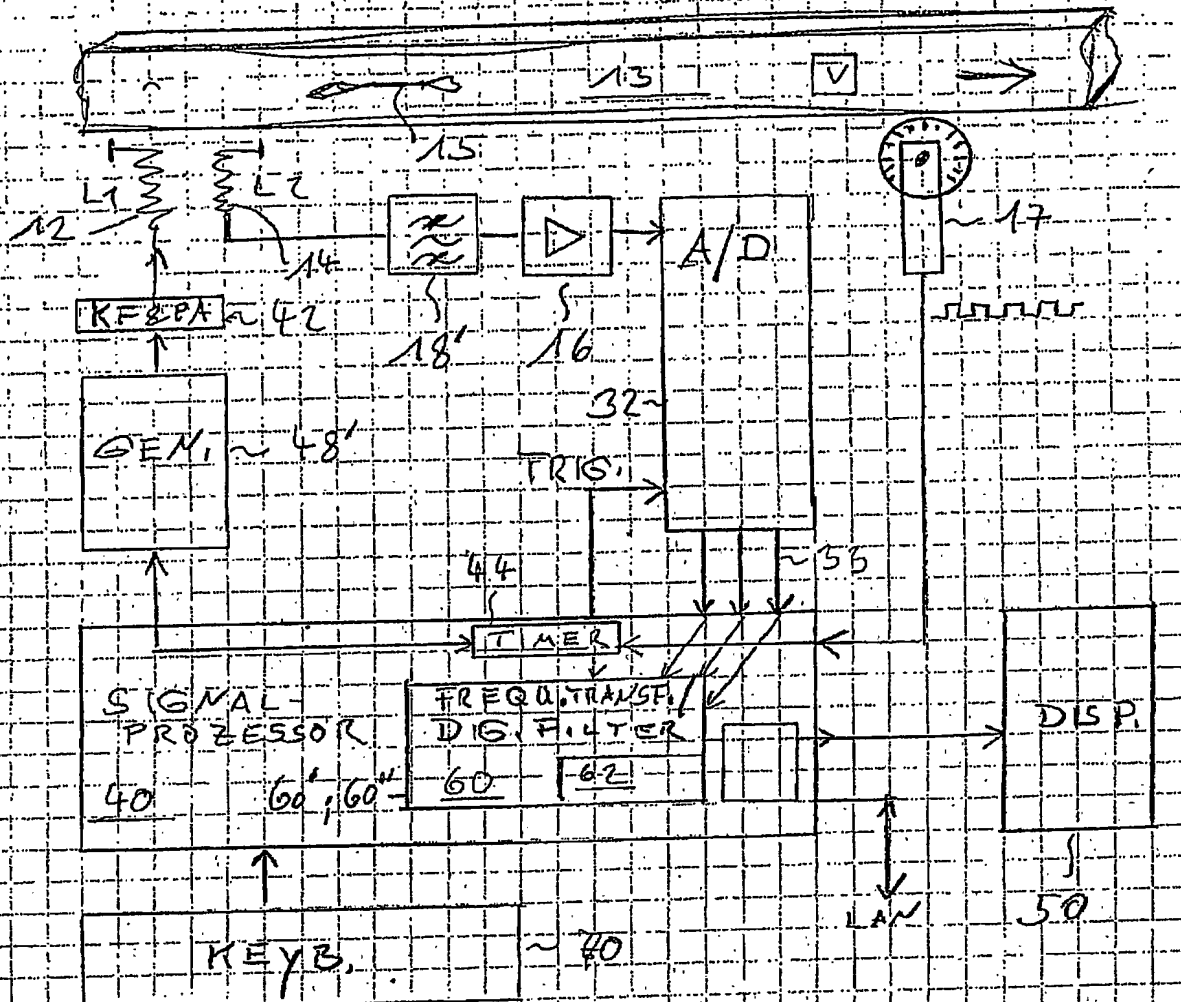 13
V
15
L1
L2
12
14
A/D
17
KF&PA
42
18'
16
32
GEN.
48'
TRIG.
44
33
TIMER
SIGNAL-
PROZESSOR
FREQU.TRANSF./
DIG.FILTER
DISP.
40
60', 60"
60
62
LAN
50
KEYB.
70